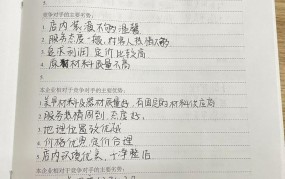 竞争对手的主要劣势:
1. 店内装潢不够准备
2. 服务态度一般,对客人热情不够
3. 急求利润,定价比较高
4. 原材料质量不高
5.
本企业相对于竞争对手的主要优势:
1. 美甲材料及器材质量好,有固定的材料供应商
2. 服务热情周到,态度好,
3. 地理位置较优越
4. 价格优惠,定价合理
5. 店内环境优美,干净整洁
本企业相对于竞争对手的主要劣势: